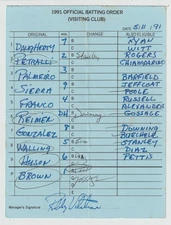 1991 OFFICIAL BATTING ORDER
(VISITING CLUB)
5/11/91
ORIGINAL CHANGE ALSO ELIGIBLE
1 DAUGHERTY 7 RYAN
WITT
2 PETRALLI 2 ROGERS
CHIAMPARINO
3 PALMEIRO 3 BARFIELD
JEFFCOAT
4 SIERRA 9 POOLE
RUSSELL
5 FRANCO 4 ALEXANDER
6 REIMER DH GOSSAGE
7 GONZALEZ 8 DOWNING
BUECHELE
8 WALLING 5 STANLEY
DIAZ
9 HUSON 6 PETTIS
P BROWN 1
Manager's Signature